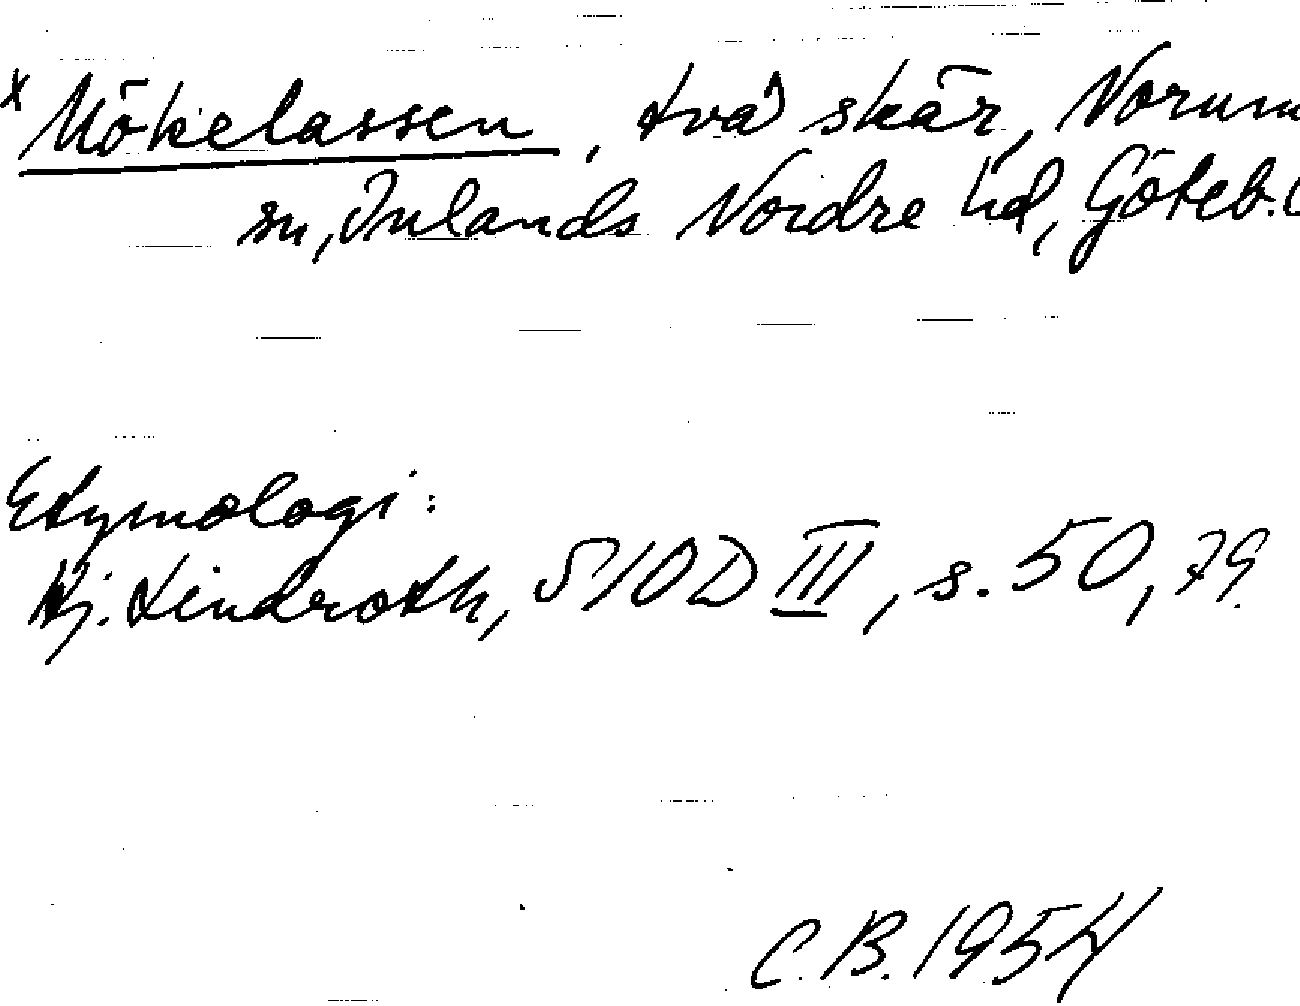 x Mökelassen, två skär, Norum
sn, Inlands Nordre hd, Göteb.
Etymologi:
Hj. Lindroth, SIOD III, s. 50, 79.
C.B. 1954